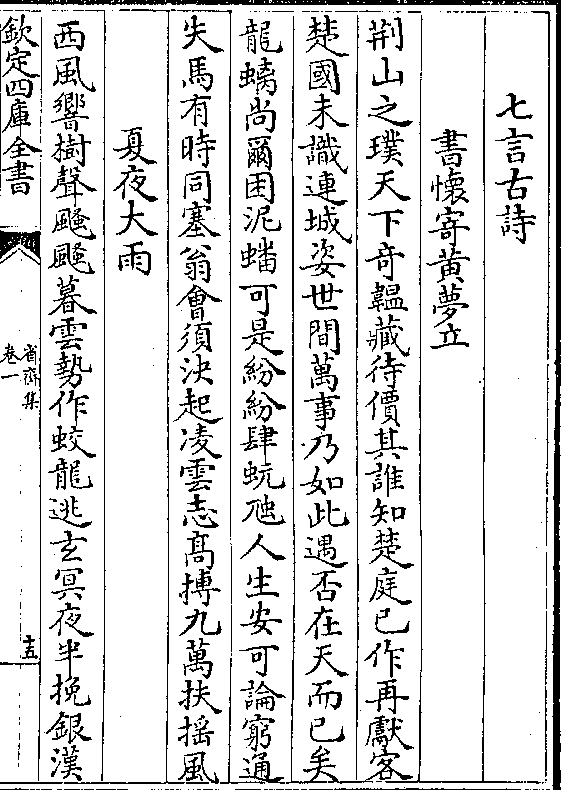 七言古詩
書懷寄黃夢立
荆山之璞天下竒韞藏待價其誰知楚庭已作再獻客
楚國未識連城姿世間萬事乃如此遇否在天而已矣
龍螭尚爾困泥蟠可是紛紛肆蚖虺人生安可論窮通
失馬有時同塞翁會須決起凌雲志髙摶九萬扶揺風
夏夜大雨
西風響樹聲飈飈暮雲勢作蛟龍逃玄冥夜半挽銀漢
欽定四庫全書
省齋集
卷一
十五